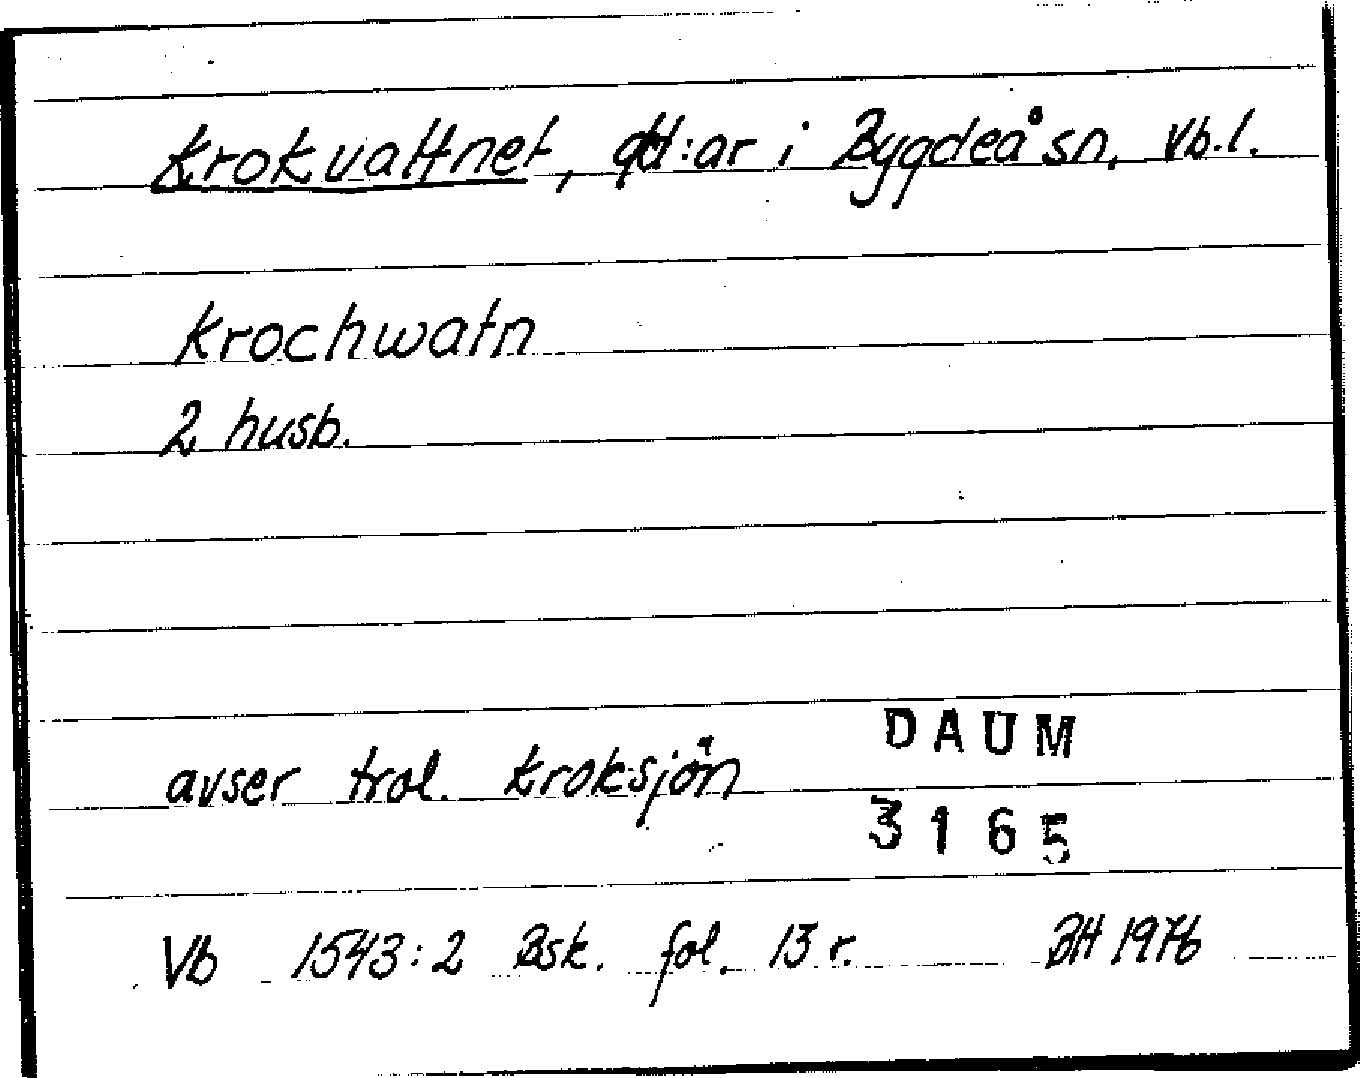 Krokvattnet, gd:ar i Bygdeå sn, Vb.l.
Krochwatn
2 husb.
avser trol. Kroksjön
DAUM
3165
Vb 1543:2 Bsk. fol. 13 r. BH 1976